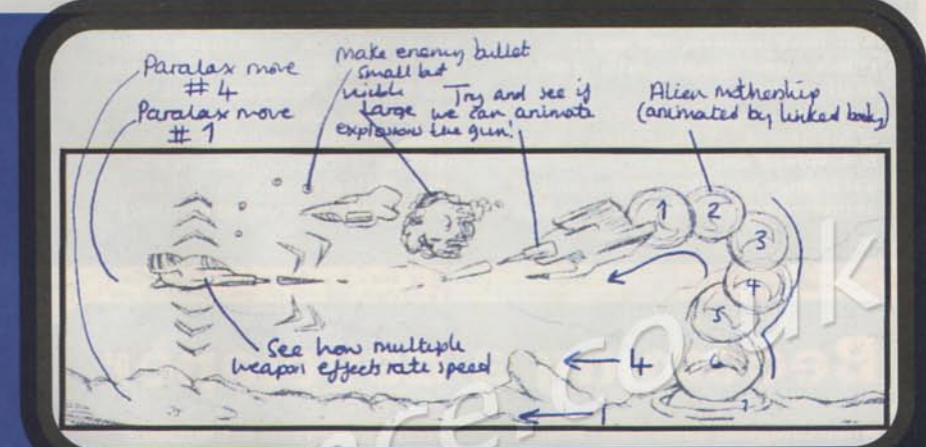 Paralax move
# 4
Paralax move
# 1
make enemy bullet
small but
visible
Large
explosion
Try and see if
we can animate
the gun!
Alien mothership
(animated by linked body)
1
2
3
4
5
6
7
See how multiple
weapon effects rate speed
4
1
ce.co.uk